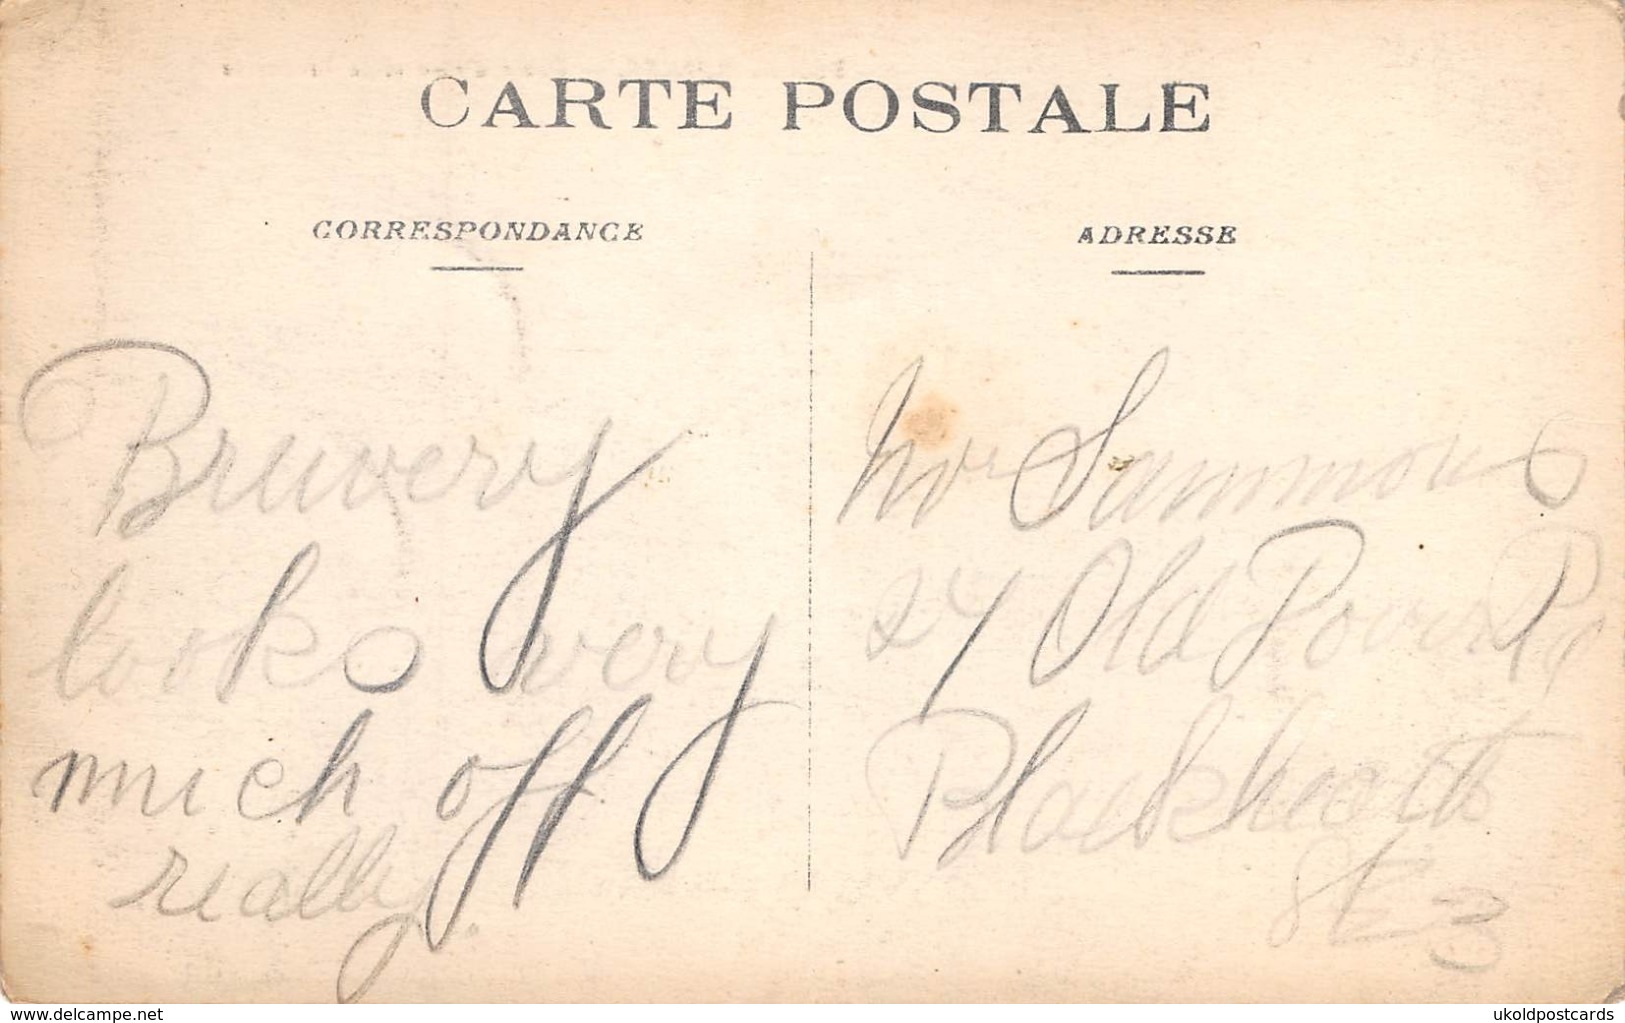 CARTE POSTALE
CORRESPONDANCE
Bruvery
looks very
much off
really.
ADRESSE
Mr Sammons
27 Old Rd
Blackheath
SE 3
www.delcampe.net
ukoldpostcards